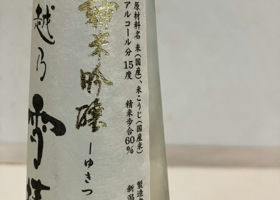 原材料名 米(国産)、米こうじ(国産米)
アルコール分 15度
精米歩合60%
製造
新潟
純米吟醸
ーゆきつ
越乃雪